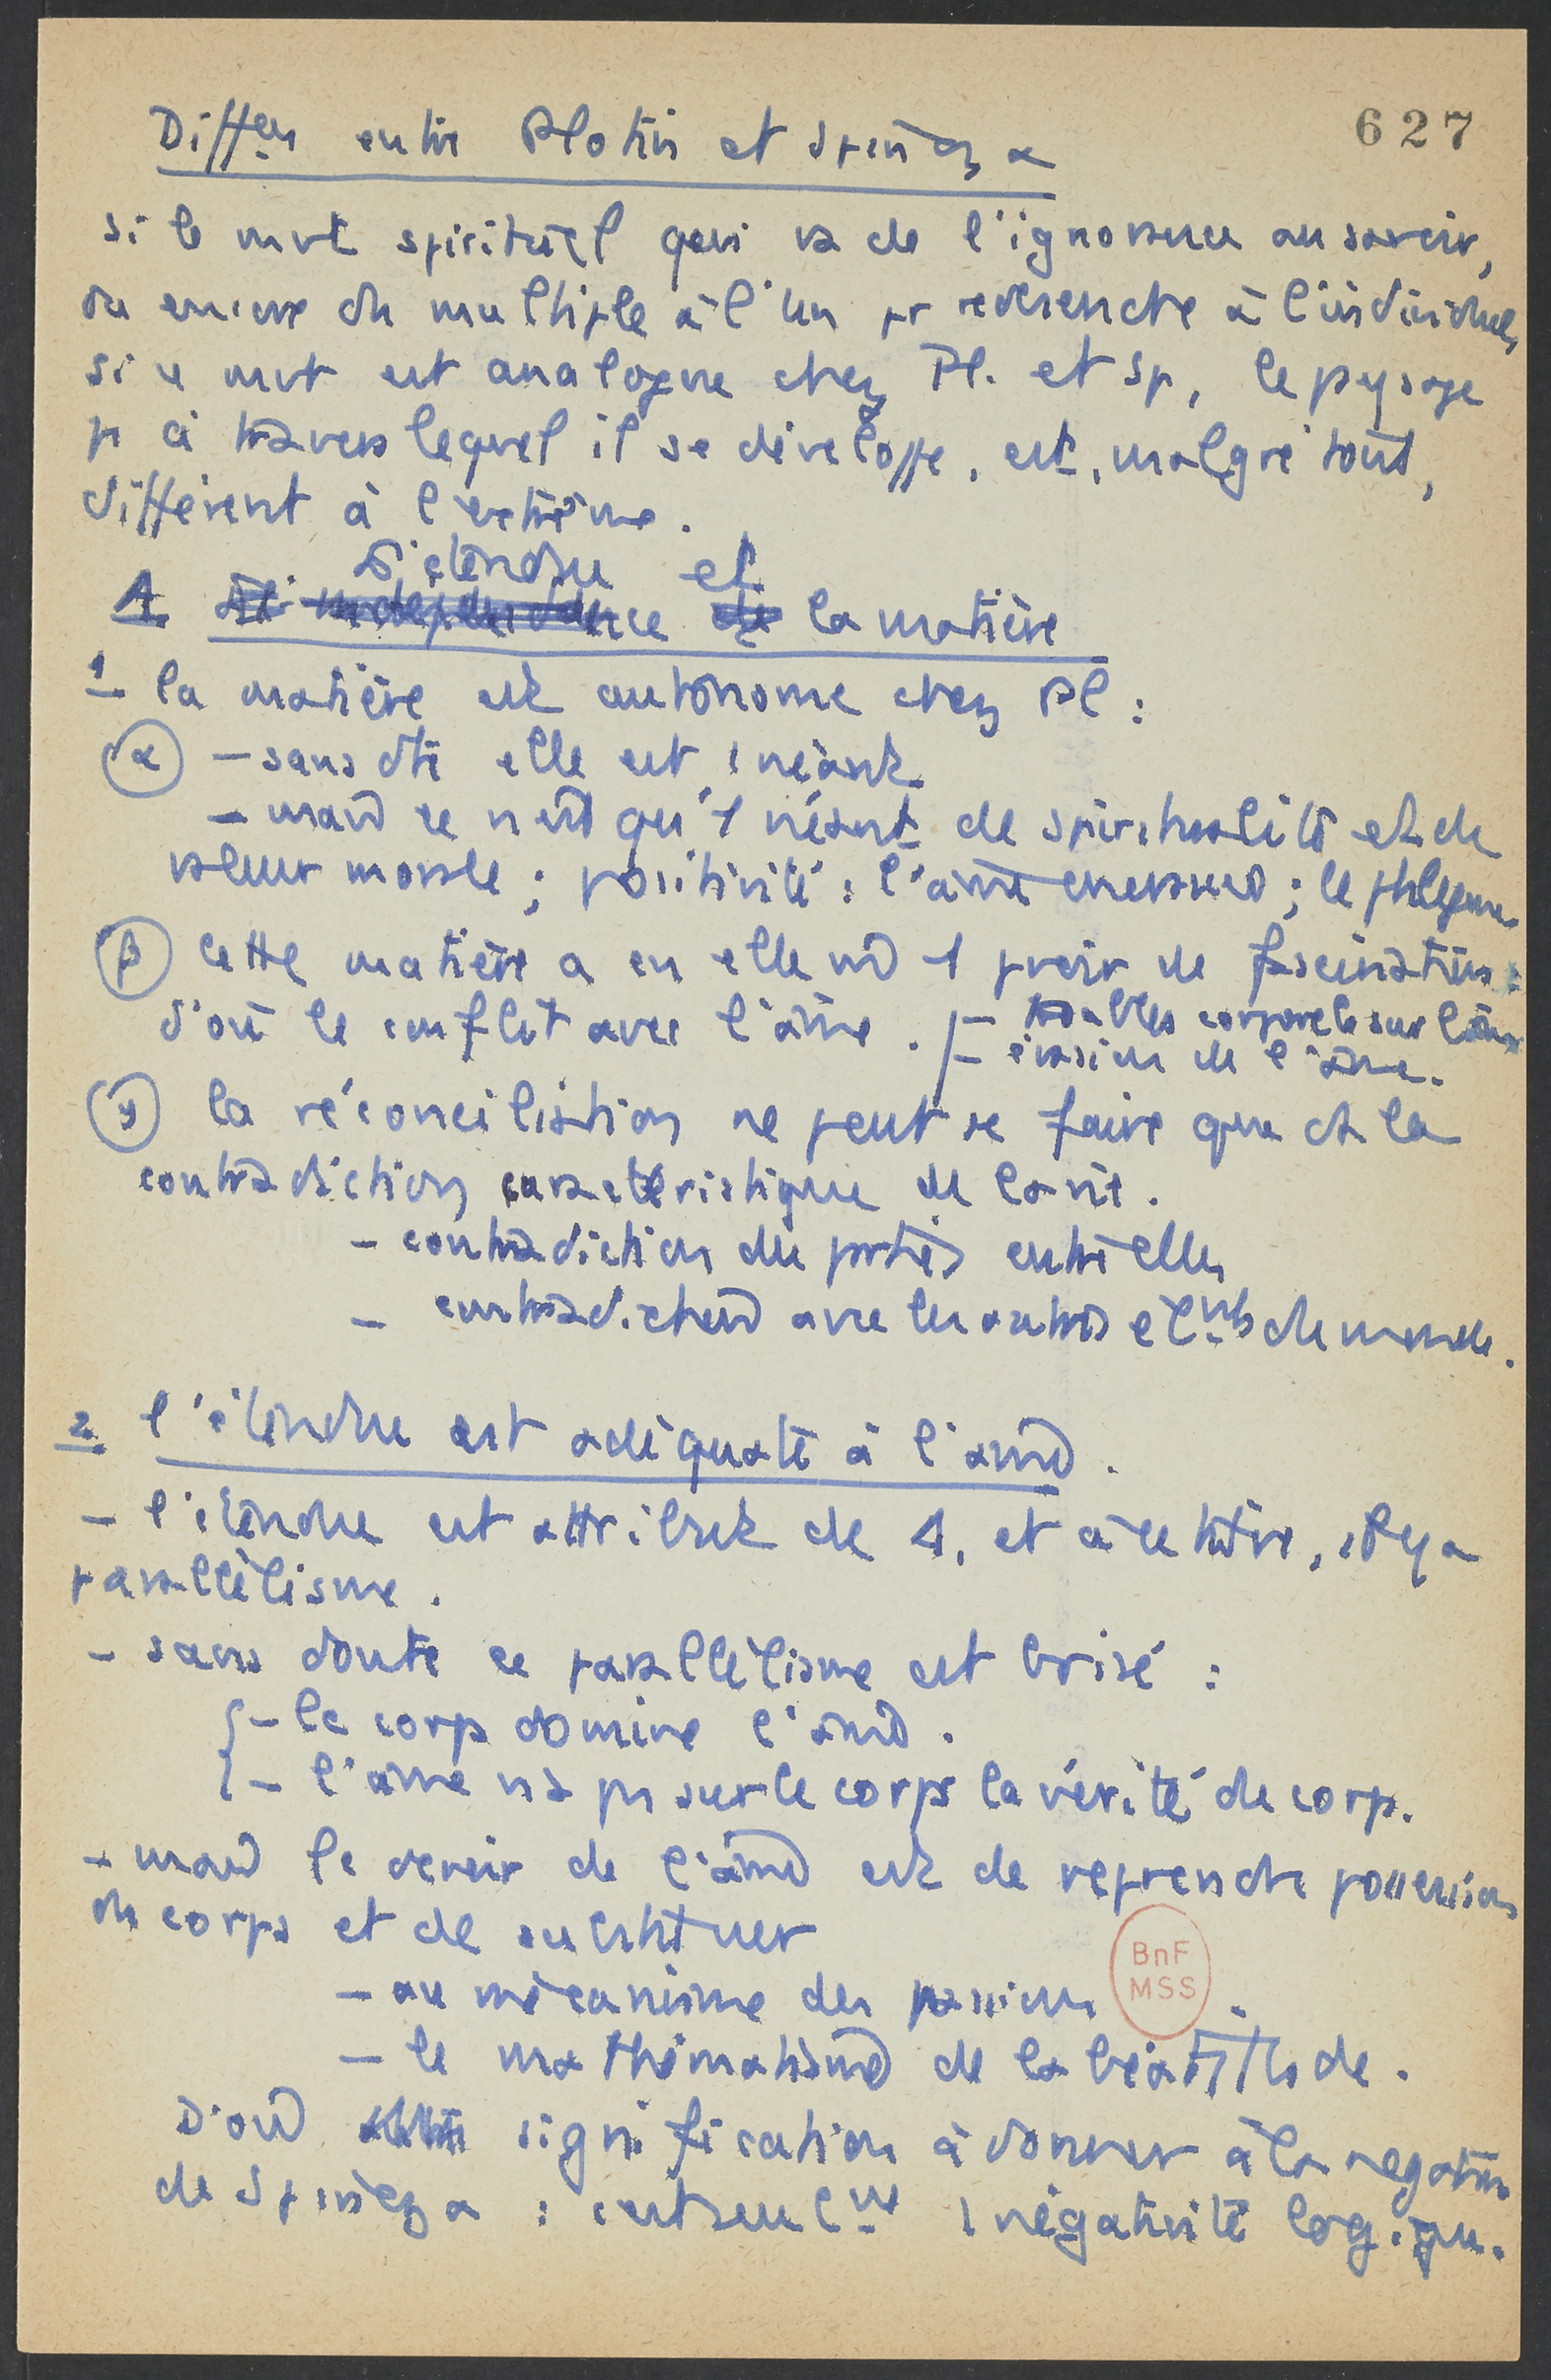 627
Diffces entre Plotin et Spinoza
si le mvt spirituel qui va de l'ignorance au savoir,
ou encore du multiple à l'un pr redescendre à l'individuel,
si ce mvt est analogue chez Pl. et Sp, le paysage
à travers lequel il se développe, est, malgré tout,
différent à l'extrême.
L'étendue et
1 indépendance de la matière
1 la matière est autonome chez Pl :
α – sans dte elle est 1 néant
– mais ce n'est qu'1 néant de spiritualité et de
valeur morale ; positivité : l'âme ; le phlegme
β cette matière a en elle 1 pvoir de fascination :
d'où le conflit avec l'âme. – troubles corporels sur l'âme
– évasion de l'âme.
γ la réconciliation ne peut se faire que ds la
contradiction caractéristique de la vie.
– contradiction des parties entre elles
– contradiction avec les autres élmts du monde.
2 l'étendue est adéquate à l'âme.
– l'étendue est attribut de 1, et à ce titre, il y a
parallélisme.
– sans doute ce parallélisme est brisé :
– le corps domine l'âme.
– l'âme n'a pas sur le corps la vérité du corps.
– mais le devoir de l'âme est de reprendre possession
du corps et de substituer
– au mécanisme des passions
– le mathématisme de la béatitude.
D'où signification à donner à la négation
de Spinoza : 1 négativité logique.
BnF
MSS